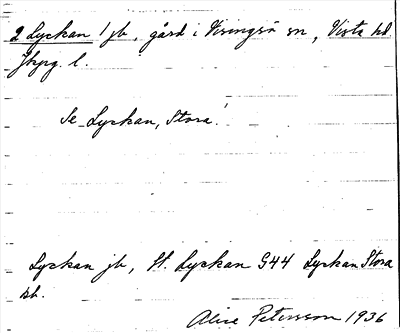 2 Lyckan 1 jb, gård i Visingsö sn, Vista hd
Jkpg. l.
Se Lyckan, Stora!
Lyckan jb, St. Lyckan G44 Lyckan Stora
sb.
Alice Petersson 1936